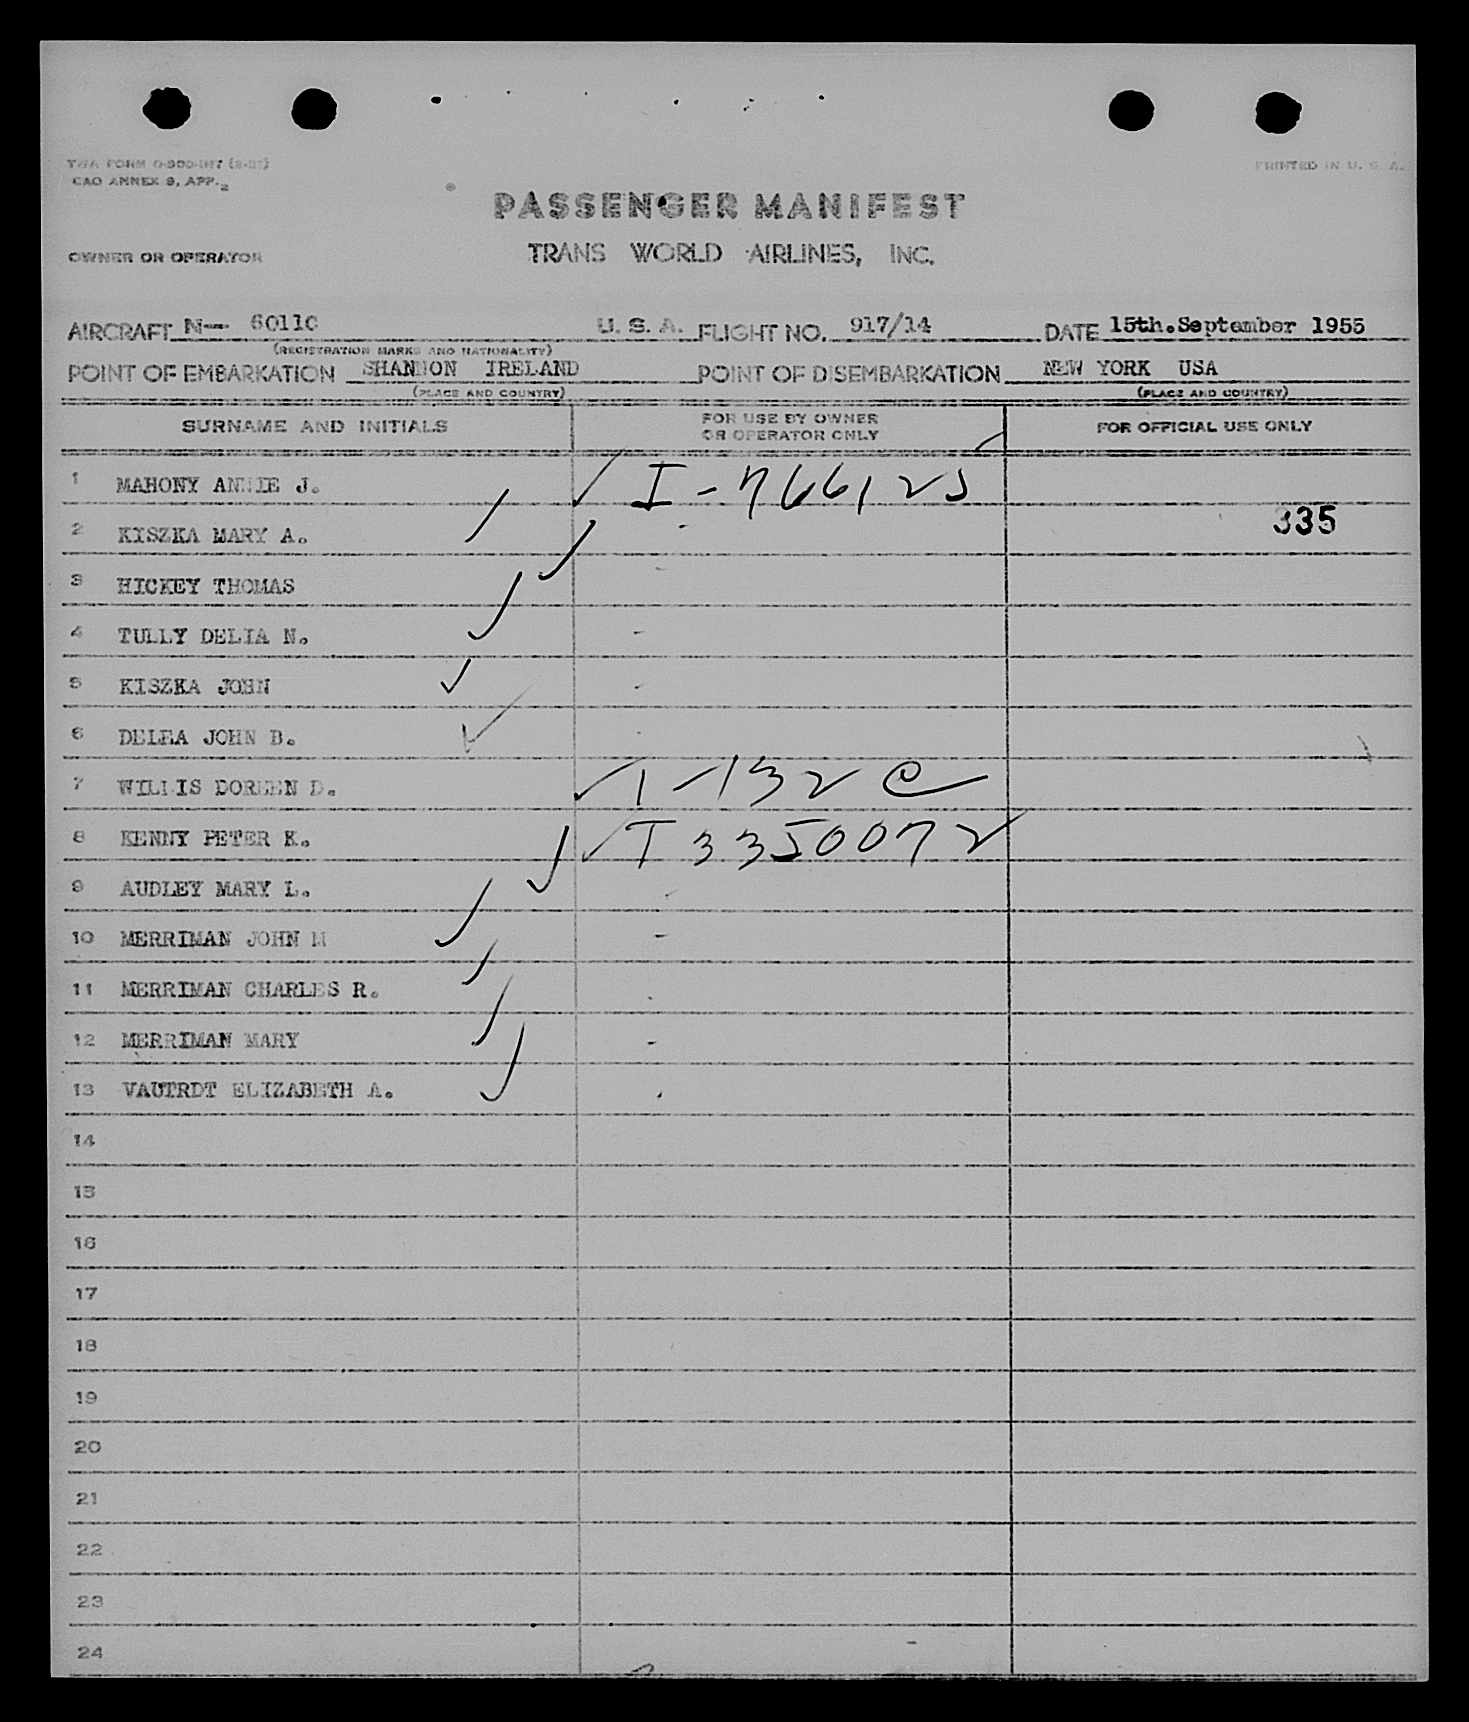 TWA FORM
CAO ANNEX 9, APP. 2
PRINTED IN U. S. A.
PASSENGER MANIFEST
TRANS WORLD AIRLINES, INC.
OWNER OR OPERATOR
AIRCRAFT N-- 6011C U. S. A. FLIGHT NO. 917/14 DATE 15th.September 1955
(REGISTRATION MARKS AND NATIONALITY)
POINT OF EMBARKATION SHANNON IRELAND POINT OF DISEMBARKATION NEW YORK USA
(PLACE AND COUNTRY) (PLACE AND COUNTRY)
SURNAME AND INITIALS FOR USE BY OWNER OR OPERATOR ONLY FOR OFFICIAL USE ONLY
1 MAHONY ANNIE J. I-766125
2 KISZKA MARY A. 335
3 HICKEY THOMAS
4 TULLY DELIA N.
5 KISZKA JOHN
6 DELEA JOHN B.
7 WILLIS DOREEN D. 1-132
8 KENNY PETER K. T 3350072
9 AUDLEY MARY L.
10 MERRIMAN JOHN M
11 MERRIMAN CHARLES R.
12 MERRIMAN MARY
13 VAUTRDT ELIZABETH A.
14
15
16
17
18
19
20
21
22
23
24